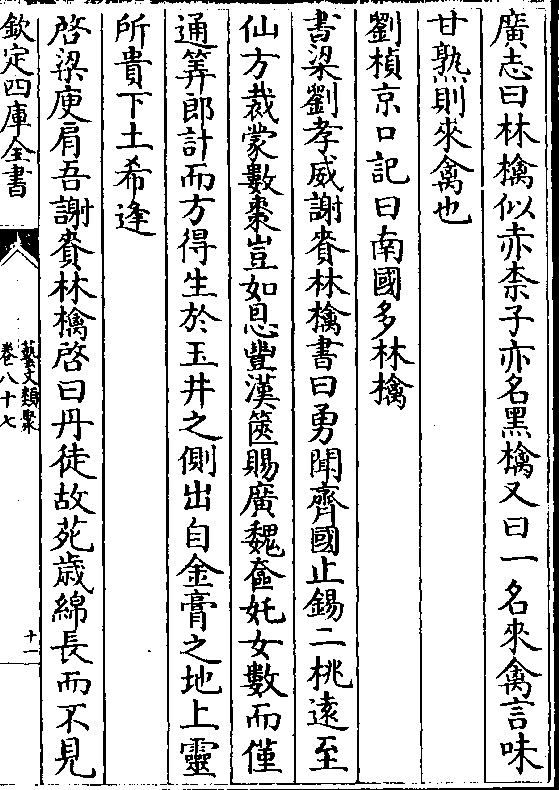 廣志曰林檎似赤柰子亦名黑檎又曰一名來禽言味
甘熟則來禽也
劉楨京口記曰南國多林檎
書梁劉孝威謝賚林檎書曰勇聞齊國止錫二桃遠至
仙方裁蒙數棗豈如恩豐漢篋賜廣魏奩奼女數而僅
通筭郎計而方得生於玉井之側出自金膏之地上靈
所貴下土希逢
啓梁庾肩吾謝賚林檎啓曰丹徒故苑歲綿長而不見
欽定四庫全書
藝文類聚
卷八十七
十一